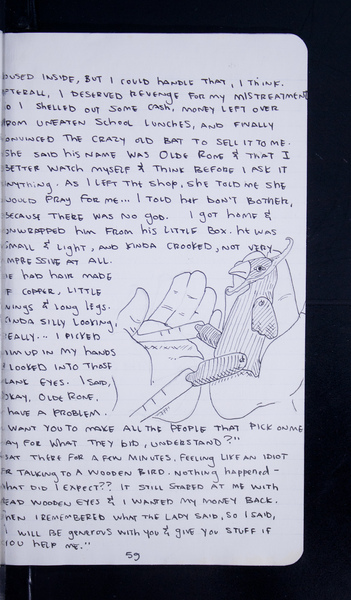 OUSED INSIDE, BUT I COULD HANDLE THAT, I THINK.
AFTERALL, I DESERVED REVENGE FOR MY MISTREATMENT
SO I SHELLED OUT SOME CASH, MONEY LEFT OVER
FROM UNEATEN SCHOOL LUNCHES, AND FINALLY
CONVINCED THE CRAZY OLD BAT TO SELL IT TO ME.
SHE SAID HIS NAME WAS OLDE RONE & THAT I
BETTER WATCH MYSELF & THINK BEFORE I ASK IT
ANYTHING. AS I LEFT THE SHOP, SHE TOLD ME SHE
WOULD PRAY FOR ME... I TOLD HER DON'T BOTHER,
BECAUSE THERE WAS NO GOD. I GOT HOME &
UNWRAPPED HIM FROM HIS LITTLE BOX. HE WAS
SMALL & LIGHT, AND KINDA CROOKED, NOT VERY
IMPRESSIVE AT ALL.
HE HAD HAIR MADE
OF COPPER, LITTLE
WINGS & LONG LEGS.
KINDA SILLY LOOKING,
REALLY... I PICKED
HIM UP IN MY HANDS
& LOOKED INTO THOSE
BLANK EYES. I SAID,
OKAY, OLDE RONE.
I HAVE A PROBLEM.
I WANT YOU TO MAKE ALL THE PEOPLE THAT PICK ON ME
PAY FOR WHAT THEY DID, UNDERSTAND?"
I SAT THERE FOR A FEW MINUTES, FEELING LIKE AN IDIOT
FOR TALKING TO A WOODEN BIRD. NOTHING HAPPENED -
WHAT DID I EXPECT?? IT STILL STARED AT ME WITH
DEAD WOODEN EYES & I WANTED MY MONEY BACK.
THEN I REMEMBERED WHAT THE LADY SAID, SO I SAID,
I WILL BE GENEROUS WITH YOU & GIVE YOU STUFF IF
YOU HELP ME."
59